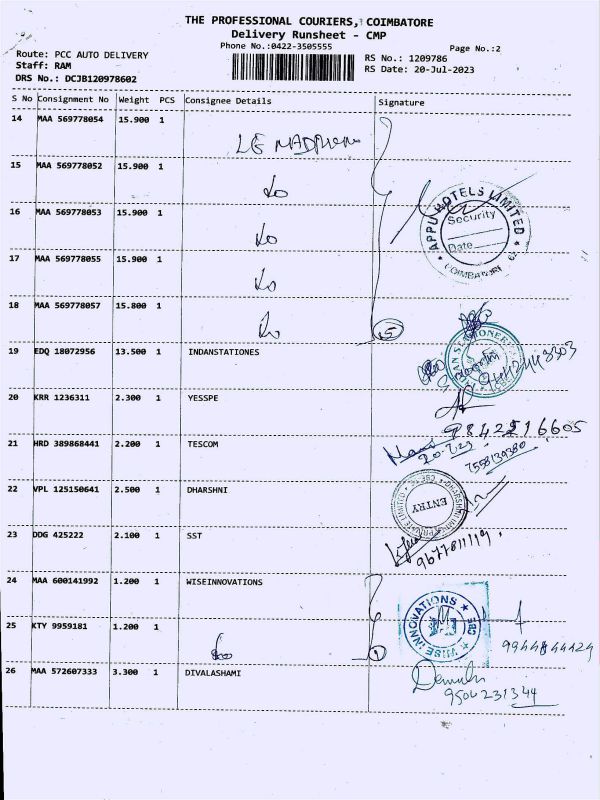 THE PROFESSIONAL COURIERS, COIMBATORE
Delivery Runsheet - CMP
Phone No.:0422-3505555
Page No.:2
Route: PCC AUTO DELIVERY
Staff: RAM
DRS No.: DCJB120978602
RS No.: 1209786
RS Date: 20-Jul-2023
S No Consignment No Weight PCS Consignee Details Signature
14 MAA 569778054 15.900 1
LE MADPHEN
15 MAA 569778052 15.900 1
Do
16 MAA 569778053 15.900 1
Do
APPU HOTELS LIMITED
Security
Date
COIMBATORE
17 MAA 569778055 15.900 1
Do
18 MAA 569778057 15.800 1
Do
5
19 EDQ 18072956 13.500 1 INDANSTATIONES
20 KRR 1236311 2.300 1 YESSPE
9842216605
21 HRD 389868441 2.200 1 TESCOM
20-7-23
7558139380
22 VPL 125150641 2.500 1 DHARSHNI
ENTRY
23 DDG 425222 2.100 1 SST
9677811119
24 MAA 600141992 1.200 1 WISEINNOVATIONS
WISE INNOVATIONS
CBE
25 KTY 9959181 1.200 1
26 MAA 572607333 3.300 1 DIVALASHAMI
9504231344